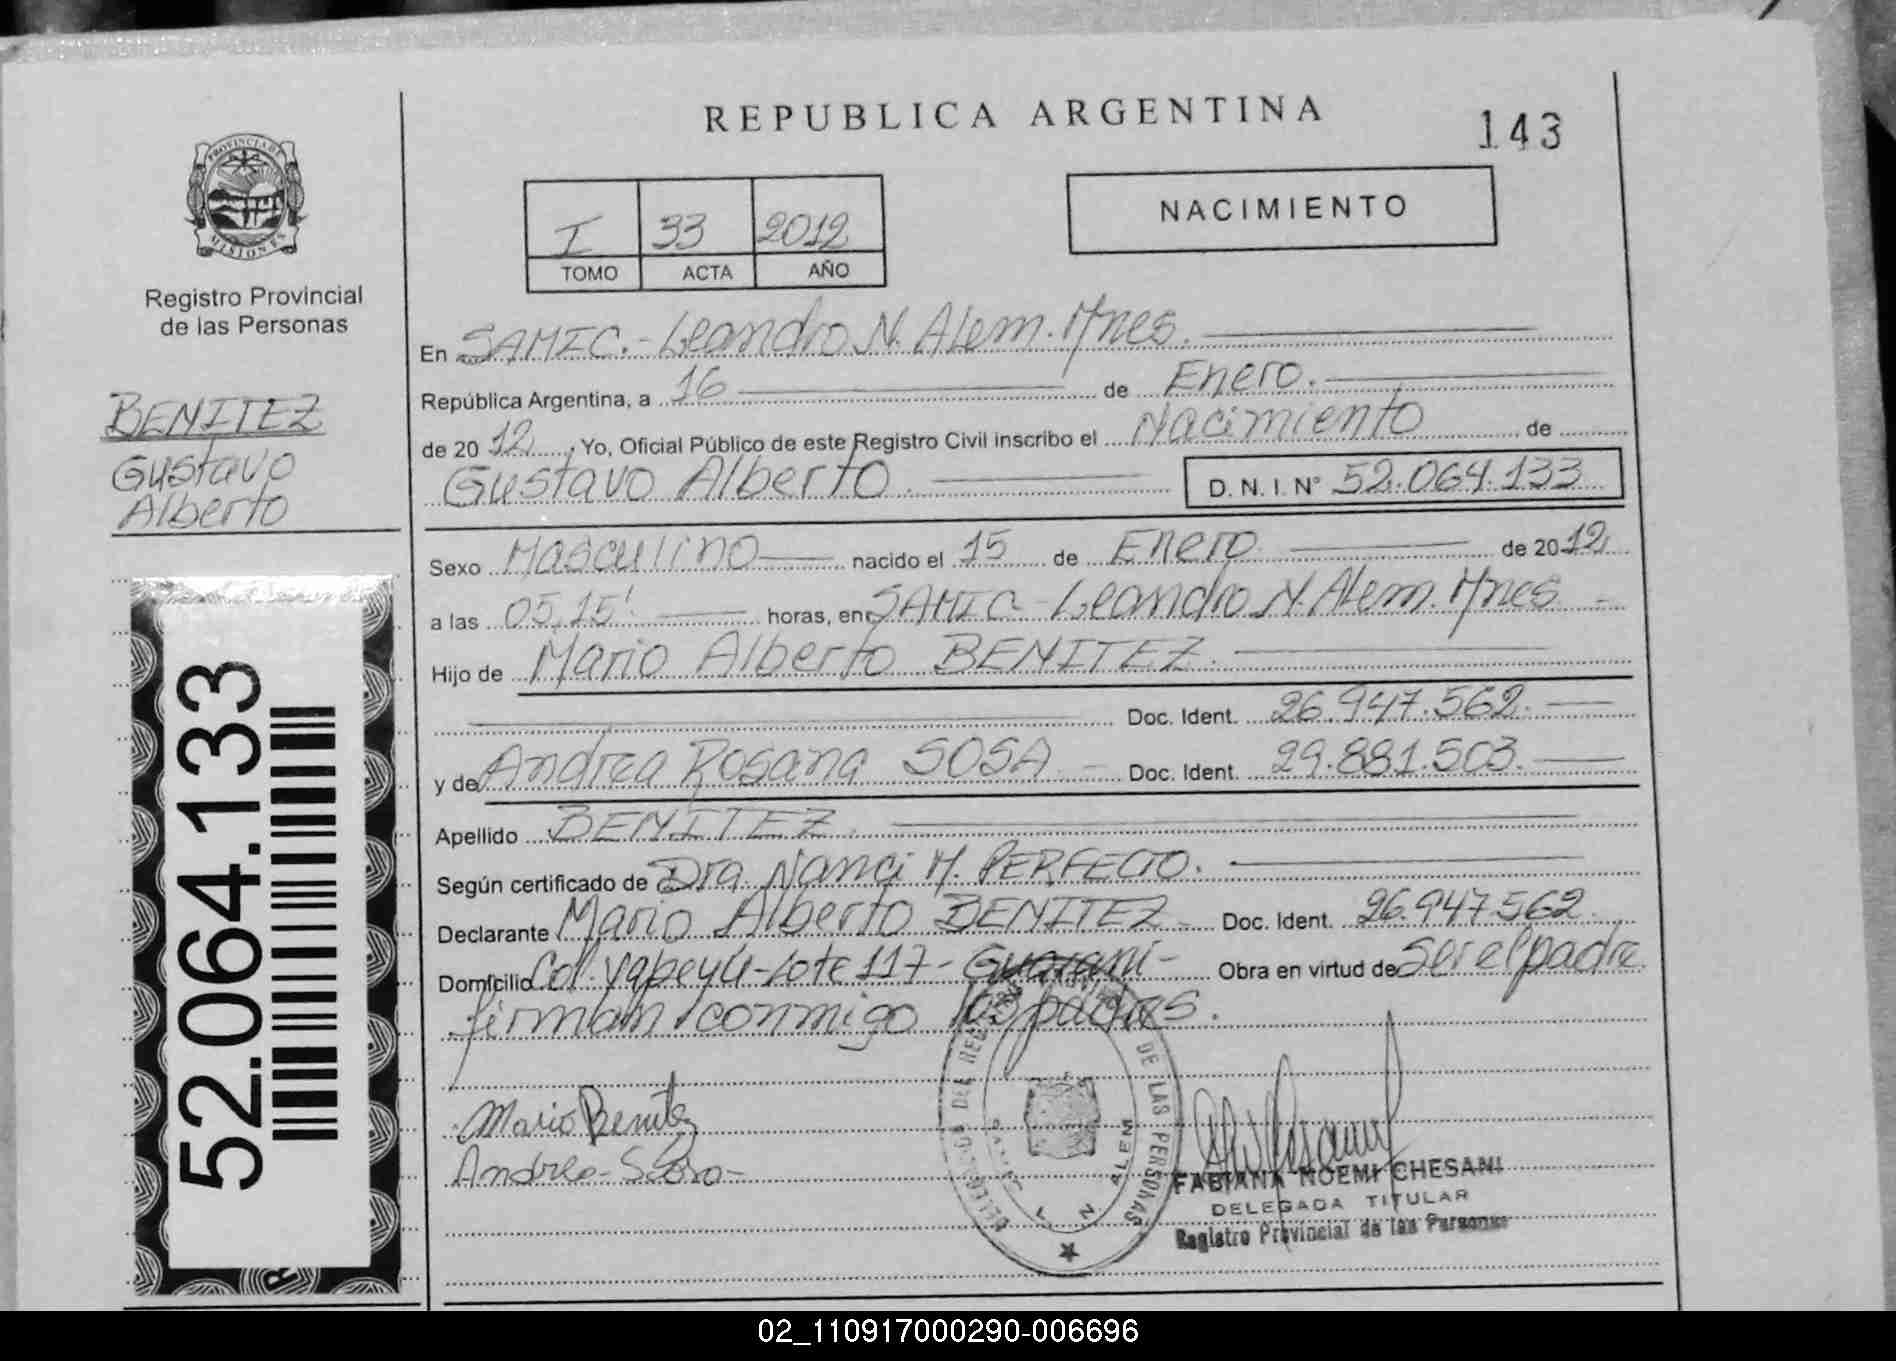 REPUBLICA ARGENTINA
143
PROVINCIA DE
MISIONES
Registro Provincial
de las Personas
I 33 2012
TOMO ACTA AÑO
NACIMIENTO
BENITEZ
Gustavo
Alberto
En SAMIC.- Leandro N. Alem. Mnes.
República Argentina, a 16 de Enero.
de 2012, Yo, Oficial Público de este Registro Civil inscribo el Nacimiento de
Gustavo Alberto. D.N.I. N° 52.064.133
Sexo Masculino nacido el 15 de Enero de 2012
a las 05,15' horas, en SAMIC - Leandro N. Alem. Mnes
Hijo de Mario Alberto BENITEZ.
Doc. Ident. 26.947.562.
y de Andrea Rosana SOSA Doc. Ident. 29.881.503.
Apellido BENITEZ.
Según certificado de Dra. Nanci M. PERFECTO.
Declarante Mario Alberto BENITEZ Doc. Ident. 26.947.562
Domicilio Col. Yapeyú - Lote 117 - Guarani - Obra en virtud de ser el padre
firman conmigo los padres.
52.064.133
Mario Benitez
DE LAS PERSONAS
L. N. ALEM
FABIANA NOEMI CHESANI
DELEGADA TITULAR
Registro Provincial de las Personas
02_110917000290-006696